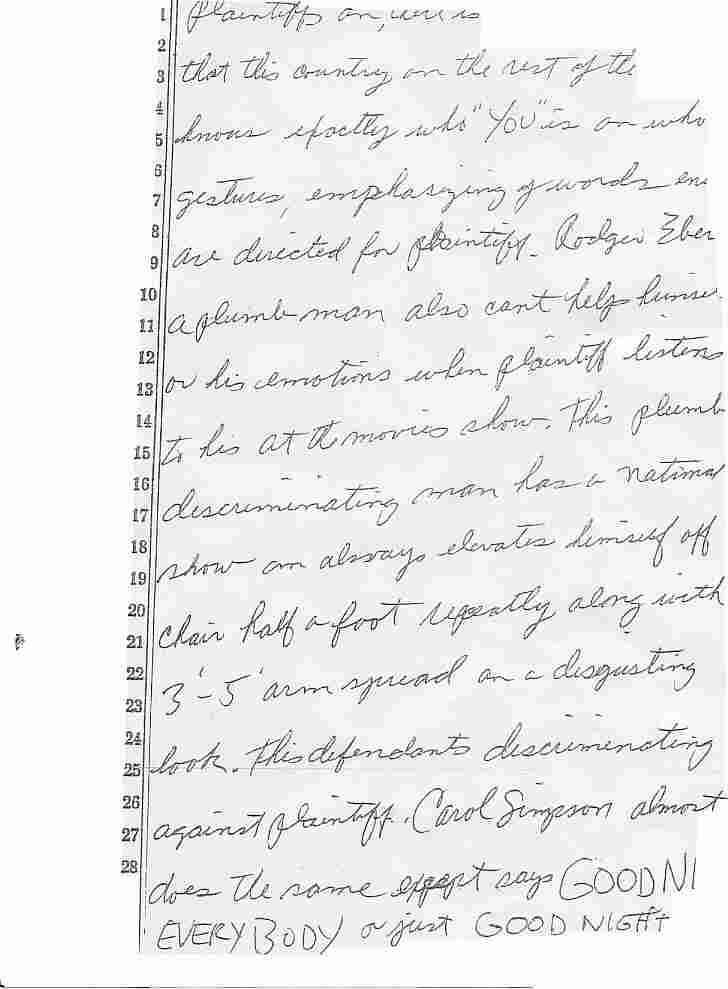 1 plaintiffs an, is
2
3 that this country an the rest of the
4
5 knows exactly who "YOU" is an who
6
7 gestures, emphasizing of words en
8
9 are directed for plaintiff. Rodger Eber
10
11 a plumb man also cant help himse
12
13 or his emotions when plaintiff listens
14
15 to his at the movies show. This plumb
16
17 discriminating man has a national
18
19 show an always elevates himself off
20
21 chair half a foot repeatly along with
22
23 3'-5' arm spread an a disgusting
24
25 look. This defendants discriminating
26
27 against plaintiff. Carol Simpson almost
28
does the same except says GOOD NI
EVERYBODY or just GOOD NIGHT